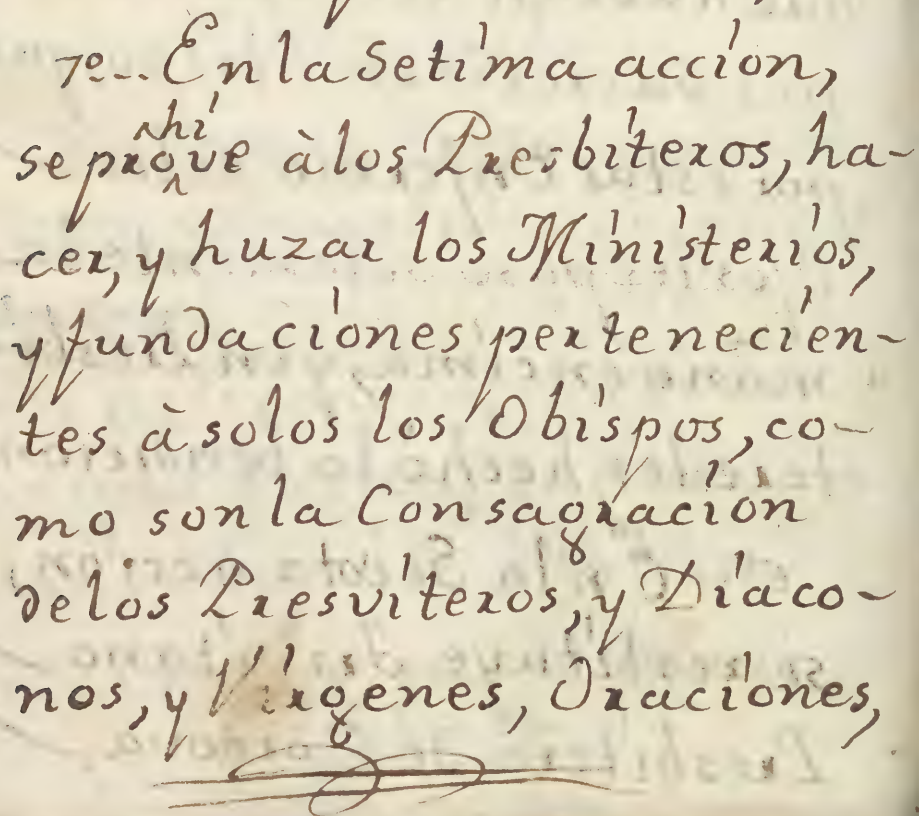 7º... En la Setima accion,
se prohive à los Presbiteros, ha-
cer, y huzar los Ministerios,
y fundaciones pertenecien-
tes à solos los Obispos, co-
mo son la Consagracion
de los Presviteros, y Diaco-
nos, y Virgenes, Oraciones,